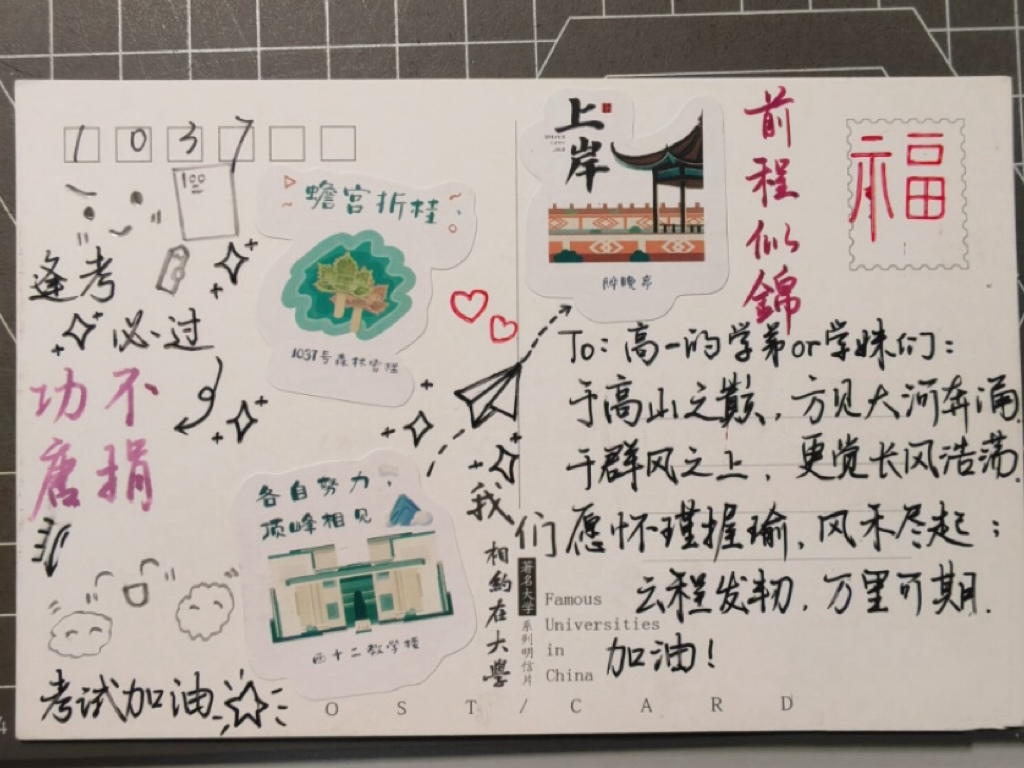 1037
100
逢考
必过
功不
唐捐
蟾宫折桂
1037号森林雪糕
各自努力,
顶峰相见
西十二教学楼
考试加油
上岸
醉晚亭
前程似錦
福
To:高一的学弟or学妹们:
于高山之巅,方见大河奔涌.
于群风之上,更觉长风浩荡.
我们愿怀瑾握瑜,风禾尽起;
云程发轫,万里可期.
加油!
相約在大學
著名大学系列明信片
Famous
Universities
in
China
OST/CARD